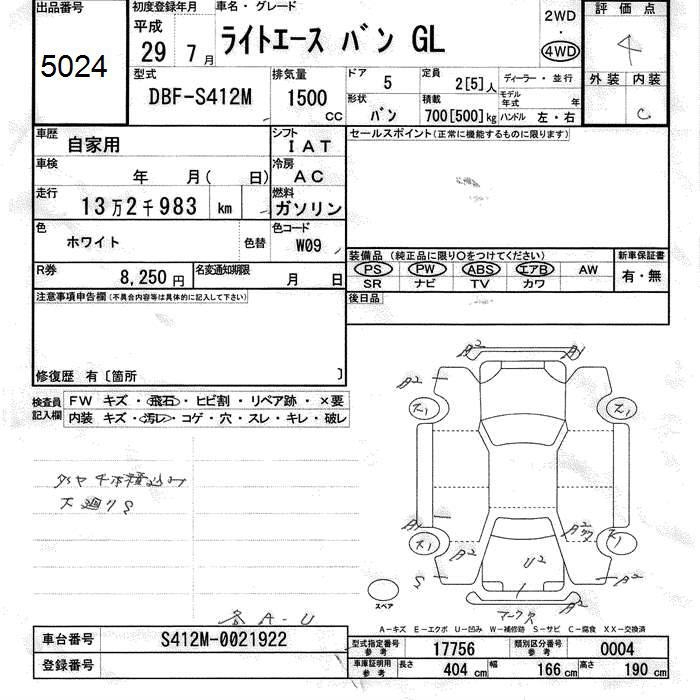 出品番号 初度登録年月 車名・グレード 2WD 評価点
5024 平成 29年 7月 ライトエース バン GL ・ 4WD 4
型式 排気量 ドア 5 定員 2[5]人 ディーラー・並行 外装 内装
DBF-S412M 1500 cc 形状 バン 積載 700[500]kg モデル年式 年 ハンドル 左・右 C
車歴 自家用 シフト IAT セールスポイント(正常に機能するものに限ります)
車検 年 月( 日) 冷房 AC
走行 13万2千983 km 燃料 ガソリン
色 ホワイト 色替 色コード W09
装備品(純正品に限り○をつけてください) 新車保証書
PS PW ABS エアB AW 有・無
SR ナビ TV カワ
R券 8,250円 名変通知期限 月 日
後日品
注意事項申告欄(不具合内容等は具体的に記入して下さい)
修復歴 有〔箇所 〕
検査員記入欄 FW キズ・飛石・ヒビ割・リペア跡・×要
内装 キズ・汚レ・コゲ・穴・スレ・キレ・破レ
A2 A2
A2 A2
ス1 ス1
タイヤ4本積込み
下廻りS
A1 A2
ス1 ス1
A2 U2
S A2 A2
スペア マークス
各A-U
A-キズ E-エクボ U-凹み W-補修跡 S-サビ C-腐食 XX-交換済
車台番号 S412M-0021922
登録番号
型式指定番号 参考 17756 類別区分番号 参考 0004
車庫証明用 参考 長さ 404cm 幅 166cm 高さ 190cm